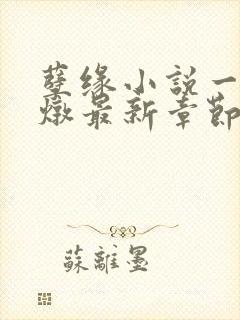 孽缘小説一
燉最新章節
蘇離墨